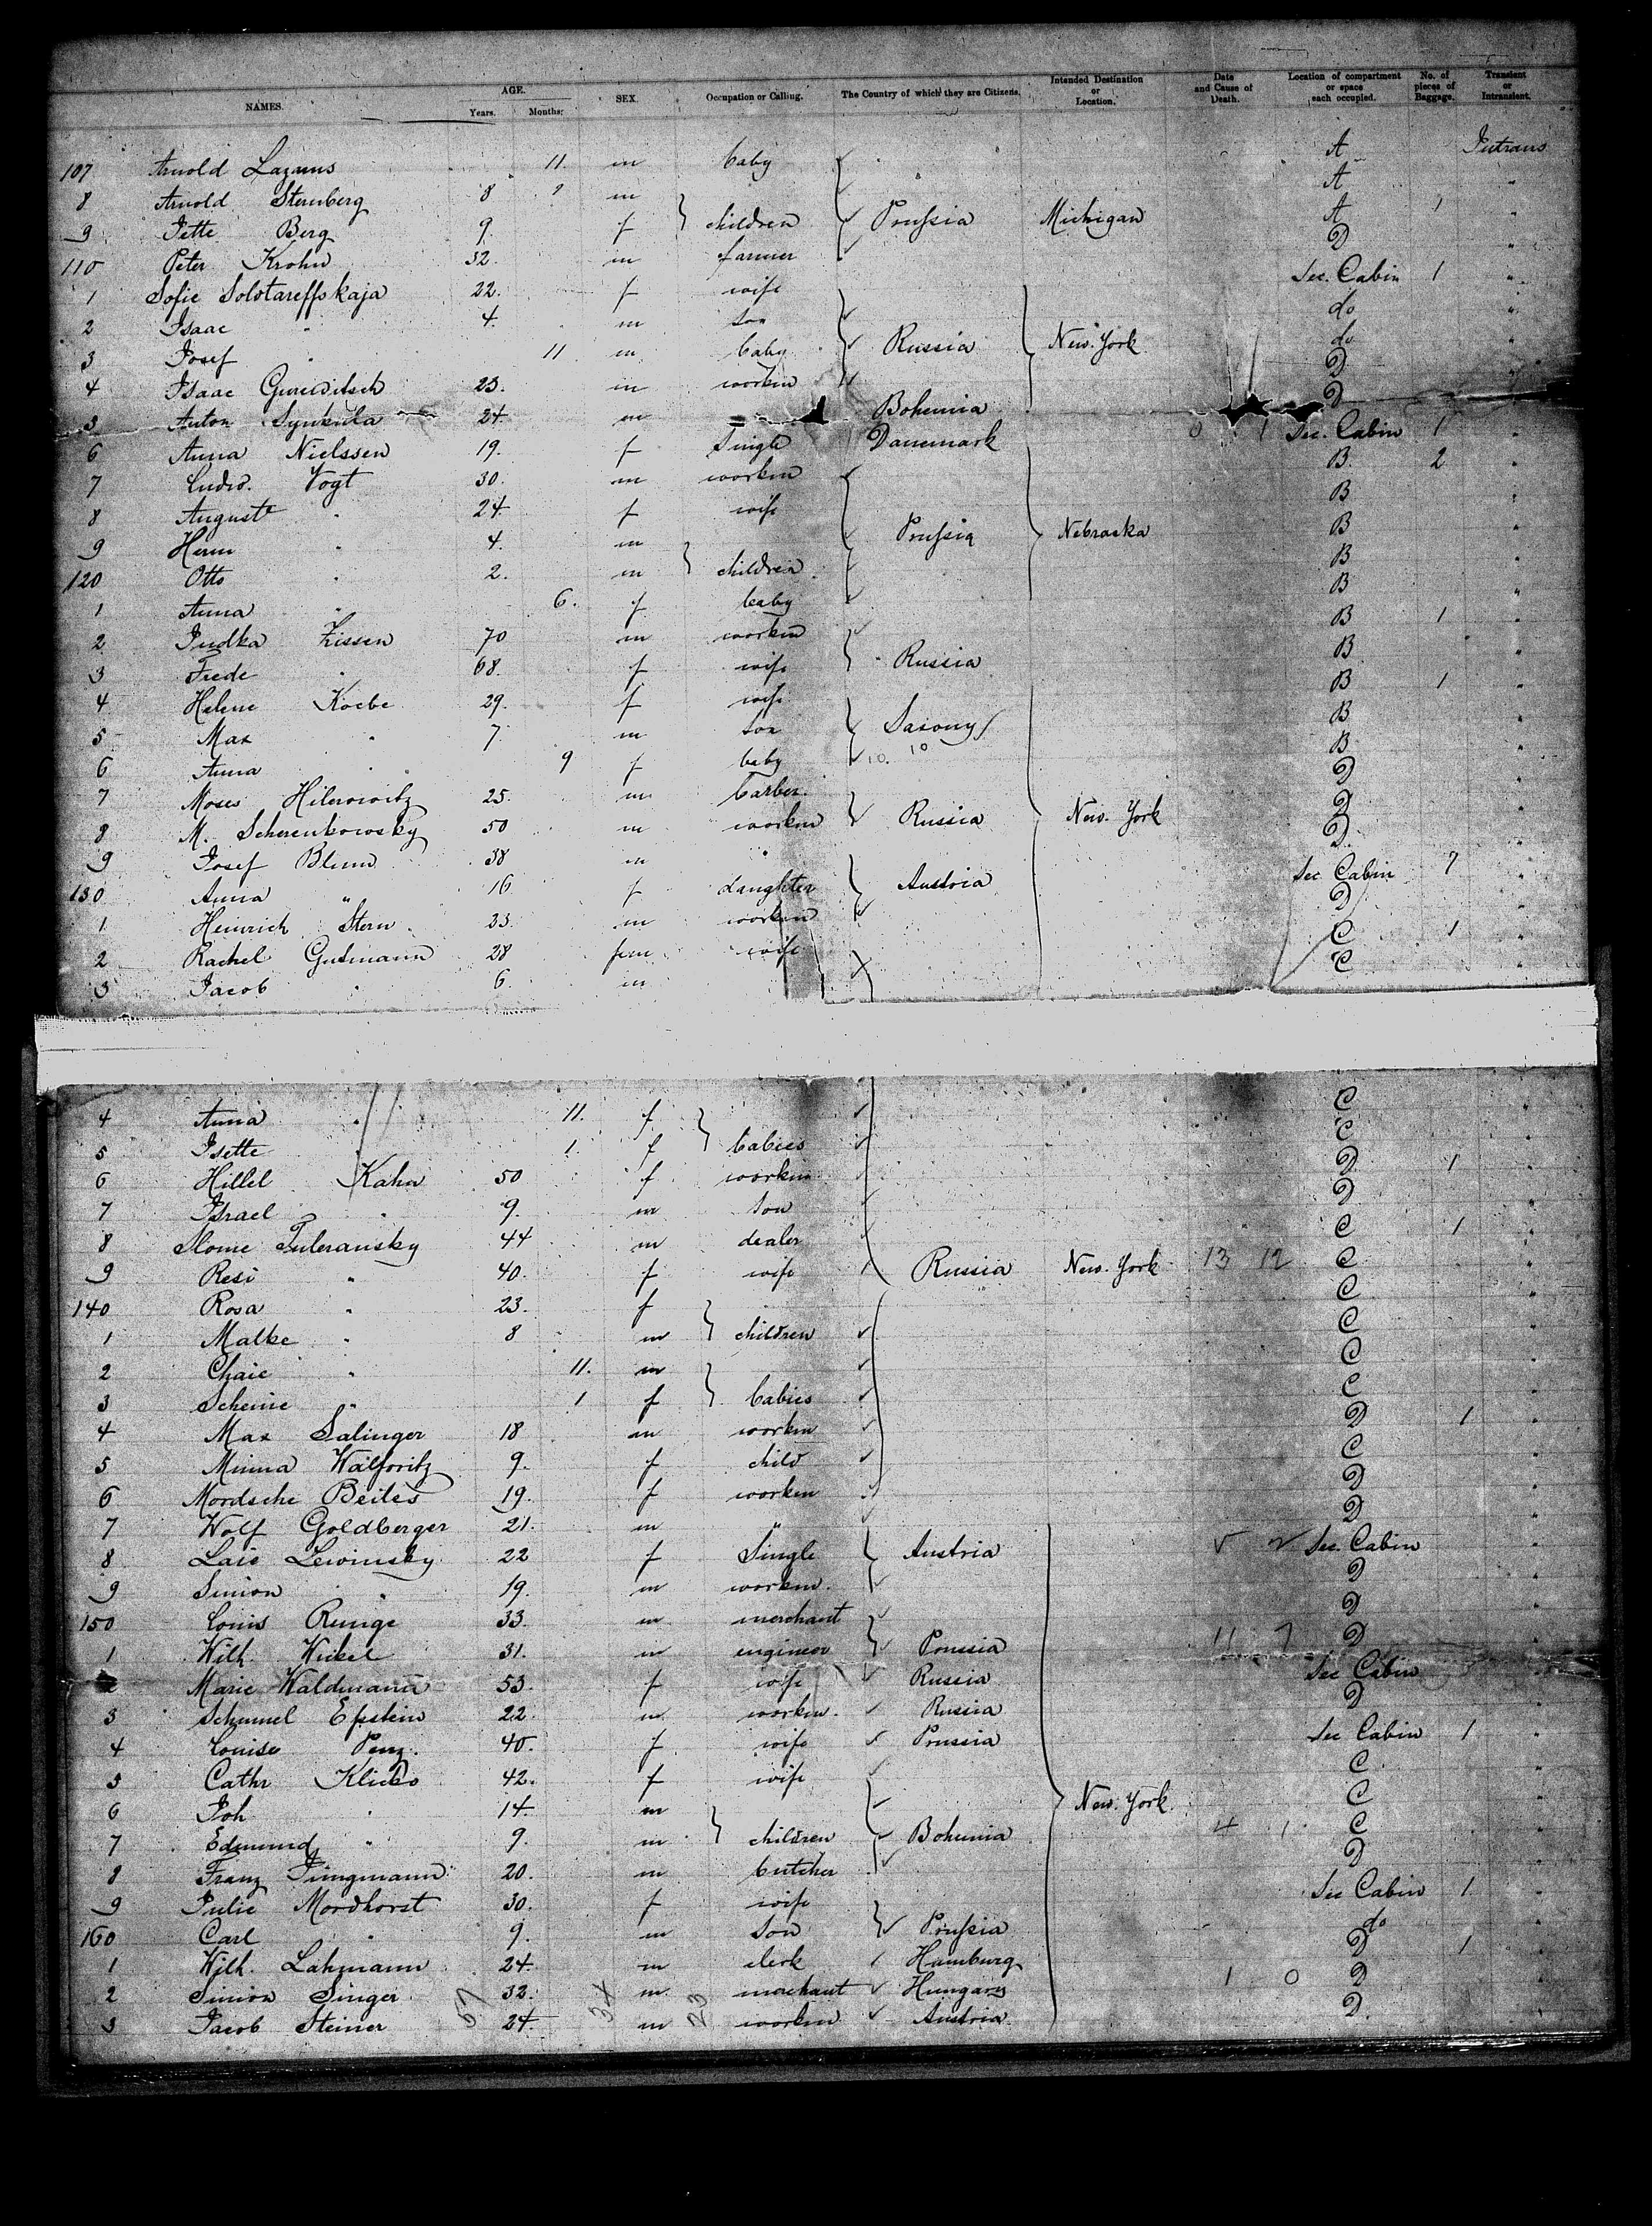 NAMES. AGE. Years. Months. SEX. Occupation or Calling. The Country of which they are Citizens. Intended Destination or Location. Date and Cause of Death. Location of compartment or space each occupied. No. of pieces of Baggage. Transient or Intransient.
107 Arnold Lazarus 11. m baby A Intrans
8 Arnold Sternberg 8 m A "
9 Jette Berg 9. f } children Prussia Michigan A 1 "
110 Peter Krohn 32. m farmer D "
1 Sofie Solotareffskaja 22. f wife Sec. Cabin 1 "
2 Isaac " 4. m son do "
3 Josef " 11 m baby Russia New York do "
4 Isaac Gurewitsch 23. m workm D "
5 Anton Synkula 24 m Bohemia D
6 Anna Nielssen 19. f Single Danemark Sec. Cabin 1 "
7 Ludw. Vogt 30. m workm B. 2 "
8 August " 24 f wife B "
9 Herm " 4. m Prussia Nebraska B "
120 Otto " 2. m } children B "
1 Anna " 6. f baby B "
2 Judka Zissen 70 m workm B 1 "
3 Frede " 68. f wife Russia B "
4 Helene Koebe 29. f wife B 1 "
5 Max " 7. m son Saxony B "
6 Anna " 9 f baby B "
7 Moses 25. m barber D "
8 M. Scherenkowsky 50 m workm Russia New York D "
9 Josef Blum 38 m " D "
130 Anna " 16 f daughter Austria Sec Cabin 7 "
1 Heinrich Stern 23. m workm D "
2 Rachel Gutmann 28 fem wife C 1 "
3 Jacob " 6. m C "
4 Anna " 11. f C "
5 Isette 1. f } babies C "
6 Hillel Kahn 50 f workm D 1 "
7 Israel " 9. m son D "
8 Slome Tuleransky 44 m dealer C 1 "
9 Resi " 40. f wife Russia New York 13 12 C "
140 Rosa " 23. f C "
1 Malke " 8 m } children C "
2 Chaie " 11. m C "
3 Scheine " 1 f } babies C "
4 Max Salinger 18 m workm D 1 "
5 Minna Walforitz 9. f child C "
6 Mordsche Beiles 19. f workm D "
7 Wolf Goldberger 21. m " D "
8 Laie Lewinsky 22 f Single Austria Sec. Cabin "
9 Simon " 19. m workm. D "
150 Louis Runge 33. m merchant D "
1 Wilh. Wickel 31. m engineer Prussia 11 7 D "
2 Marie Waldmann 53. f wife Russia Sec Cabin "
3 Schumel Epstein 22. m workm. Russia D "
4 Louise Penz. 40. f wife Prussia Sec Cabin 1 "
5 Cathr 42. f wife C "
6 Joh " 14. m New York. C "
7 Edmund " 9. m } children Bohemia 4 1 C "
8 Franz 20. m butcher D "
9 Julie Mordhorst 30. f wife Sec Cabin 1. "
160 Carl " 9. m son Prussia do "
1 Wilh. Lahmann 24. m clerk Hamburg D 1 "
2 Simon Singer 32. m merchant Hungary 1 0 D "
3 Jacob Steiner 24. m workm Austria D. "
57 34 23